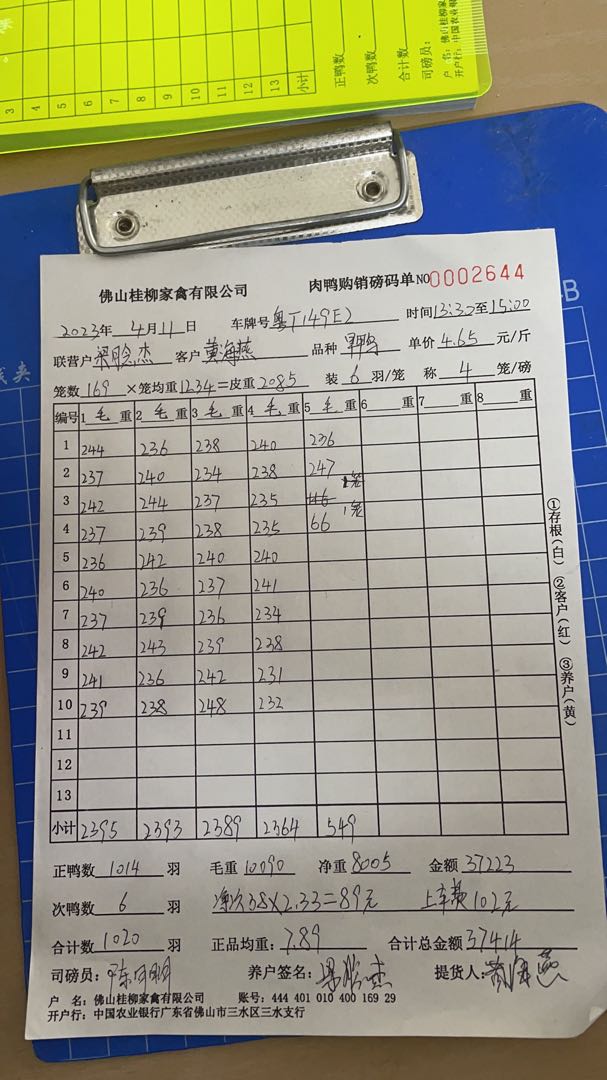 3 4 5 6 7 8 9 10 11 12 13 小计
正鸭数
次鸭数
合计数
司磅员:
户 名: 佛山桂柳家
开户行: 中国农业银
佛山桂柳家禽有限公司 肉鸭购销磅码单 NO0002644
2023年 4月11日 车牌号粤T149E2 时间13:30至15:00
联营户 梁 杰 客户 黄海燕 品种 单价 4.65 元/斤
笼数 169 ×笼均重1234=皮重2085 装 6 羽/笼 称 4 笼/磅
编号 1 毛 重 2 毛 重 3 毛 重 4 毛 重 5 毛 重 6 重 7 重 8 重
1 244 236 238 240 236
2 237 240 234 238 247
3 242 244 237 235 1笼
4 237 239 238 235 66 1笼
5 236 242 240 240
6 240 236 237 241
7 237 239 236 234
8 242 243 239 238
9 241 236 242 231
10 239 238 248 232
11
12
13
小计 2395 2393 2389 2364 549
正鸭数 1014 羽 毛重 10090 净重 8005 金额 37223
次鸭数 6 羽 38×2.33=89元 上车费102元
合计数 1020 羽 正品均重: 7.89 合计总金额 37414
司磅员: 陈明明 养户签名: 梁 杰 提货人: 黄海燕
户 名: 佛山桂柳家禽有限公司 账号: 444 401 010 400 169 29
开户行: 中国农业银行广东省佛山市三水区三水支行
①存根(白) ②客户(红) ③养户(黄)